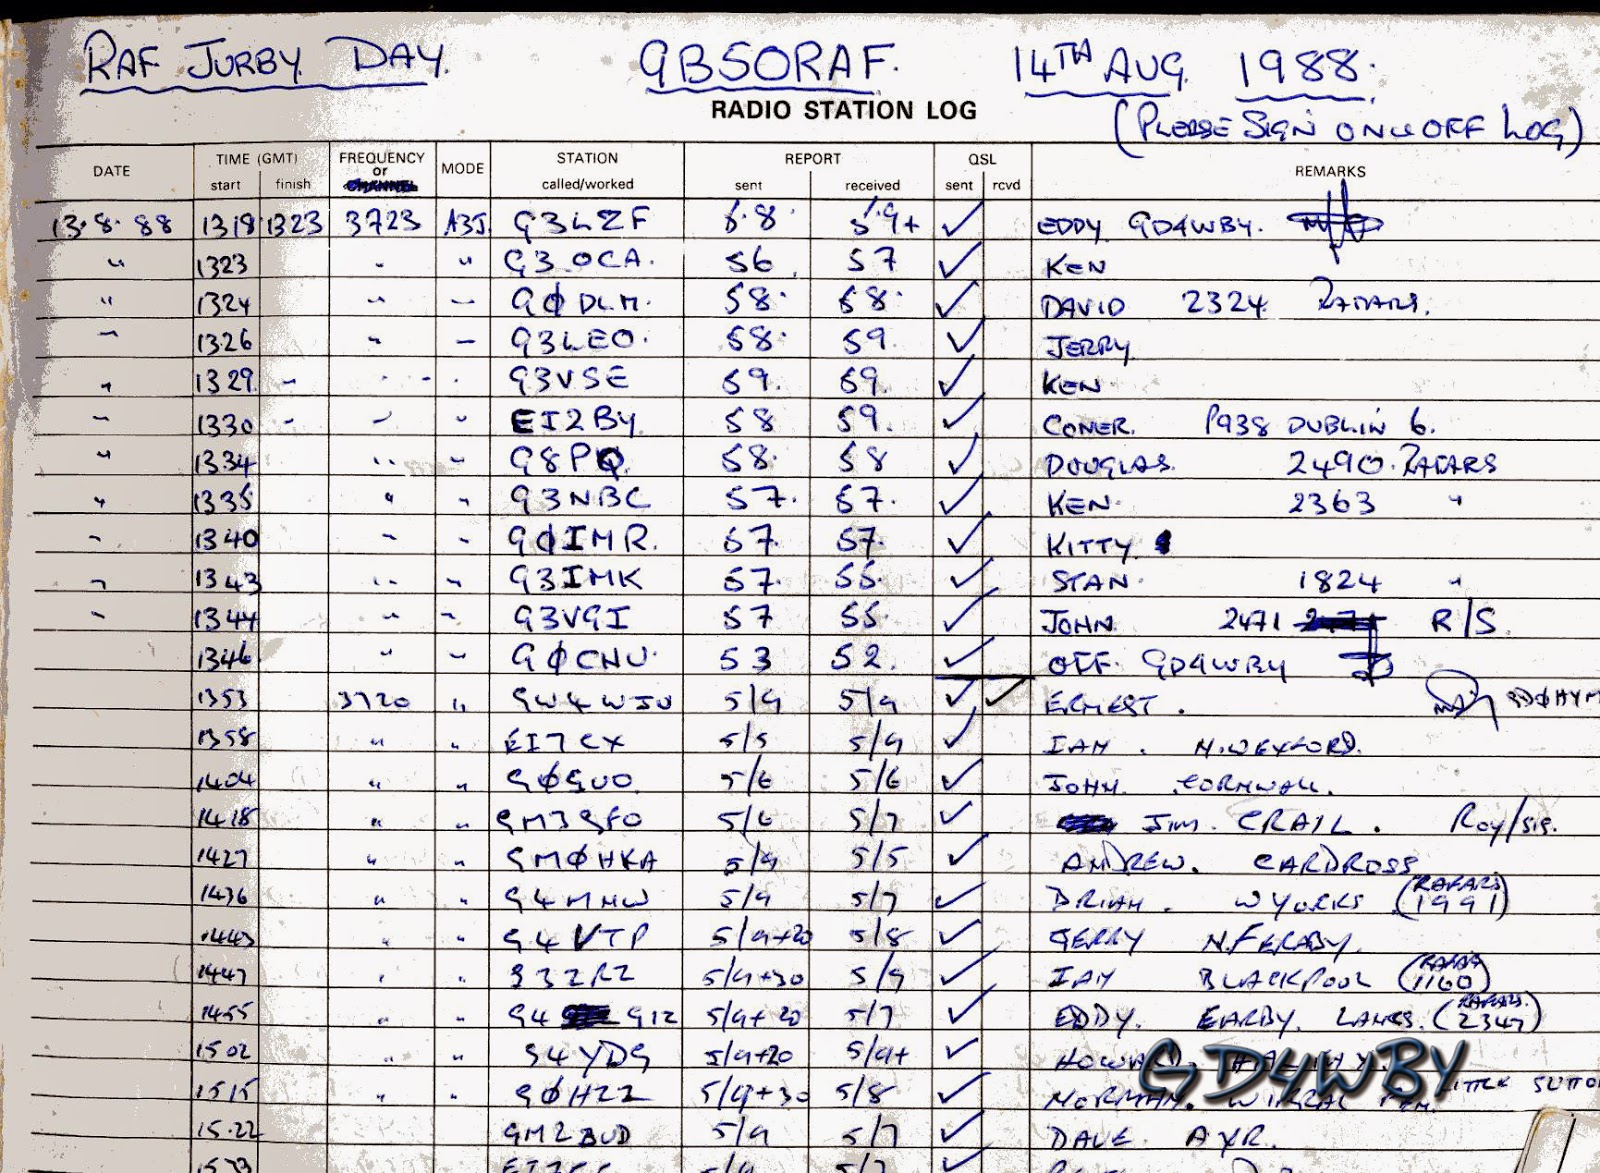 RAF JURBY DAY. GB50RAF. 14TH AUG 1988.
RADIO STATION LOG
(PLEASE SIGN ON & OFF LOG)
DATE TIME (GMT) FREQUENCY or CHANNEL MODE STATION REPORT QSL REMARKS
start finish called/worked sent received sent rcvd
13.8.88 1319 1323 3723 A3J G3LZF 5.8 5.9+ ✓ EDDY GD4WBY.
" 1323 " " G3OCA. 56 57 ✓ KEN
" 1324 " " GØDLM. 58. 58. ✓ DAVID 2324 RAFARS.
" 1326 " " G3LEO. 58. 59 ✓ JERRY
" 1329 " " " G3VSE 59. 59. ✓ KEN
" 1330 " " " EI2BY 58 59. ✓ CONER. P938 DUBLIN 6.
" 1334 " " G8PQ 58. 58 ✓ DOUGLAS. 2490. RAFARS
" 1335 " " G3NBC 57. 57. ✓ KEN. 2363 "
" 1340 " " GØIMR. 57. 57. ✓ KITTY.
" 1343 " " G3IMK 57. 55. ✓ STAN. 1824 "
" 1344 " " G3VGI 57 55. ✓ JOHN. 2471 R/S.
1346 " " GØCNU. 53 52. ✓ OFF. GD4WBY
1353 3720 " GW4WJU 5/9 5/9 ✓ ✓ ERNEST. GDØHYM
1358 " " EI7CX 5/5 5/9 ✓ IAN. N.WEXFORD.
1404 " " GØGUO. 5/6 5/6 ✓ JOHN. CORNWALL.
1418 " " GM3GFO 5/6 5/7 ✓ JIM. CRAIL. Roy/sig.
1427 " " GMØHKA 5/9 5/5 ✓ ANDREW. CARDROSS
1436 " " G4MNW 5/9 5/7 ✓ BRIAN. W YORKS (RAFARS 1991)
1443 " " G4VTP 5/9+20 5/8 ✓ GERRY N.FERABY.
1447 " " G3ZRZ 5/9+30 5/9 ✓ IAN BLACKPOOL (RAFAR 1160)
1455 " " G4 GIZ 5/9+20 5/7 ✓ EDDY. EARBY. LANCS. (RAFARS. 2347)
1502 " " G4YDG 5/9+20 5/9+ ✓ HOWARD.
1515 " " GØHZZ 5/9+30 5/8 ✓ NORMAN. WIRRAL LITTLE SUTTO
1522 GM2BUD 5/9 5/7 ✓ DAVE AYR.
GD4WBY